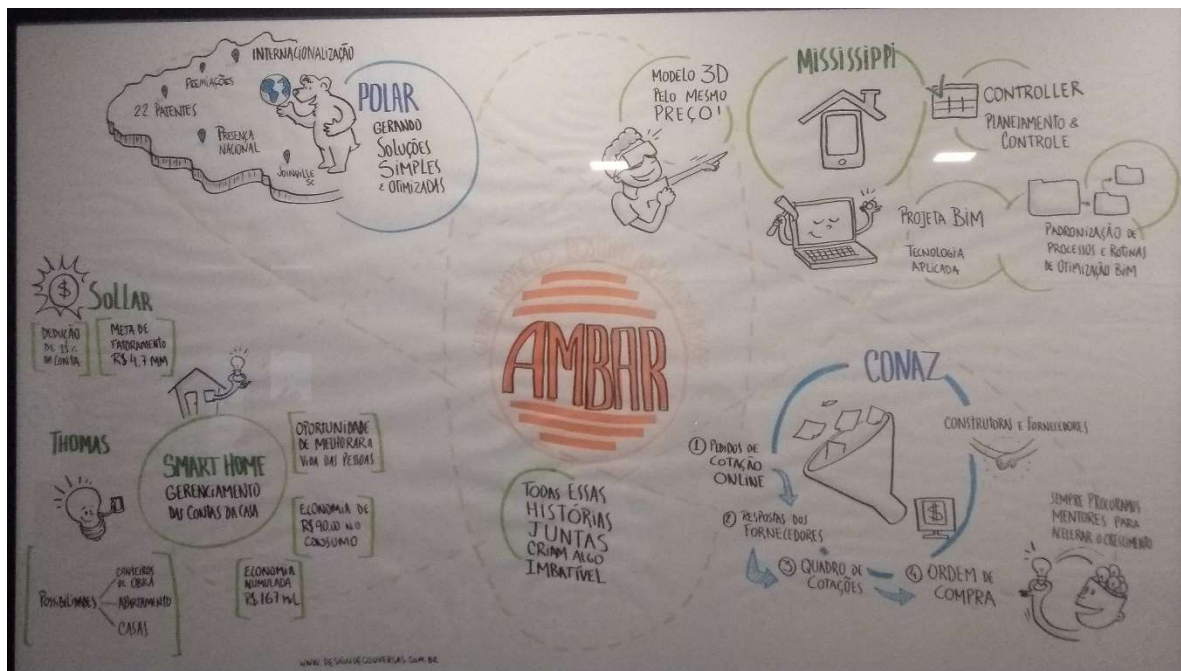 INTERNACIONALIZAÇÃO
PREMIAÇÕES
22 PATENTES
PRESENÇA
NACIONAL
JOINVILLE
SC
POLAR
GERANDO
SOLUÇÕES
SIMPLES
E OTIMIZADAS
MODELO 3D
PELO MESMO
PREÇO!
MISSISSIPPI
CONTROLLER
PLANEJAMENTO &
CONTROLE
PROJETA BIM
TECNOLOGIA
APLICADA
PADRONIZAÇÃO DE
PROCESSOS E ROTINAS
DE OTIMIZAÇÃO BIM
$
SOLLAR
DEDUÇÃO
DE
DA CONTA
META DE
FATURAMENTO
R$ 4,7 MM
THOMAS
SMART HOME
GERENCIAMENTO
DAS CONTAS DA CASA
OPORTUNIDADE
DE MELHORAR A
VIDA DAS PESSOAS
ECONOMIA DE
R$ 90,00 NO
CONSUMO
ECONOMIA
ACUMULADA
R$ 167 MIL
POSSIBILIDADES
CANTEIROS
DE OBRA
APARTAMENTO
CASAS
AMBAR
TODAS ESSAS
HISTÓRIAS
JUNTAS
CRIAM ALGO
IMBATÍVEL
CONAZ
CONSTRUTORAS E FORNECEDORES
1 PEDIDOS DE
COTAÇÃO
ONLINE
2 RESPOSTAS DOS
FORNECEDORES
3 QUADRO DE
COTAÇÕES
4 ORDEM DE
COMPRA
$
SEMPRE PROCURAMOS
MENTORES PARA
ACELERAR O CRESCIMENTO
WWW.DESIGNDECONVERSAS.COM.BR